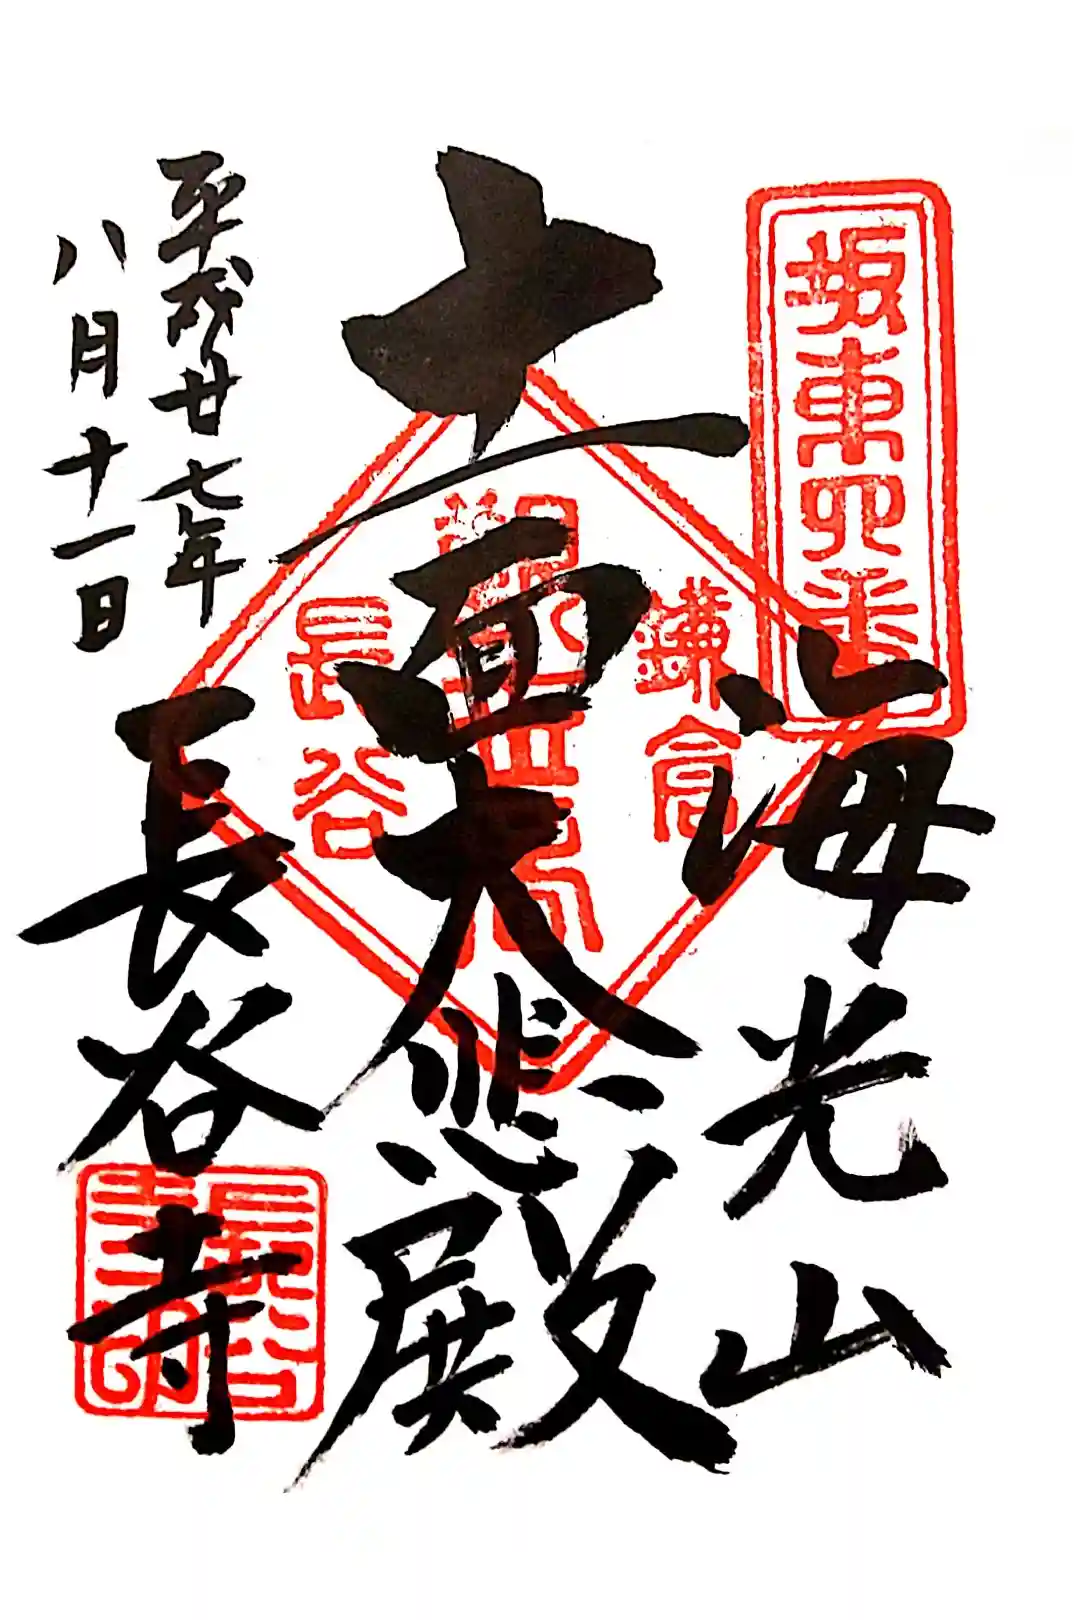 坂東四番
海光山
鎌倉
十一面大悲殿
長谷
長谷寺
平成廿七年
八月十一日